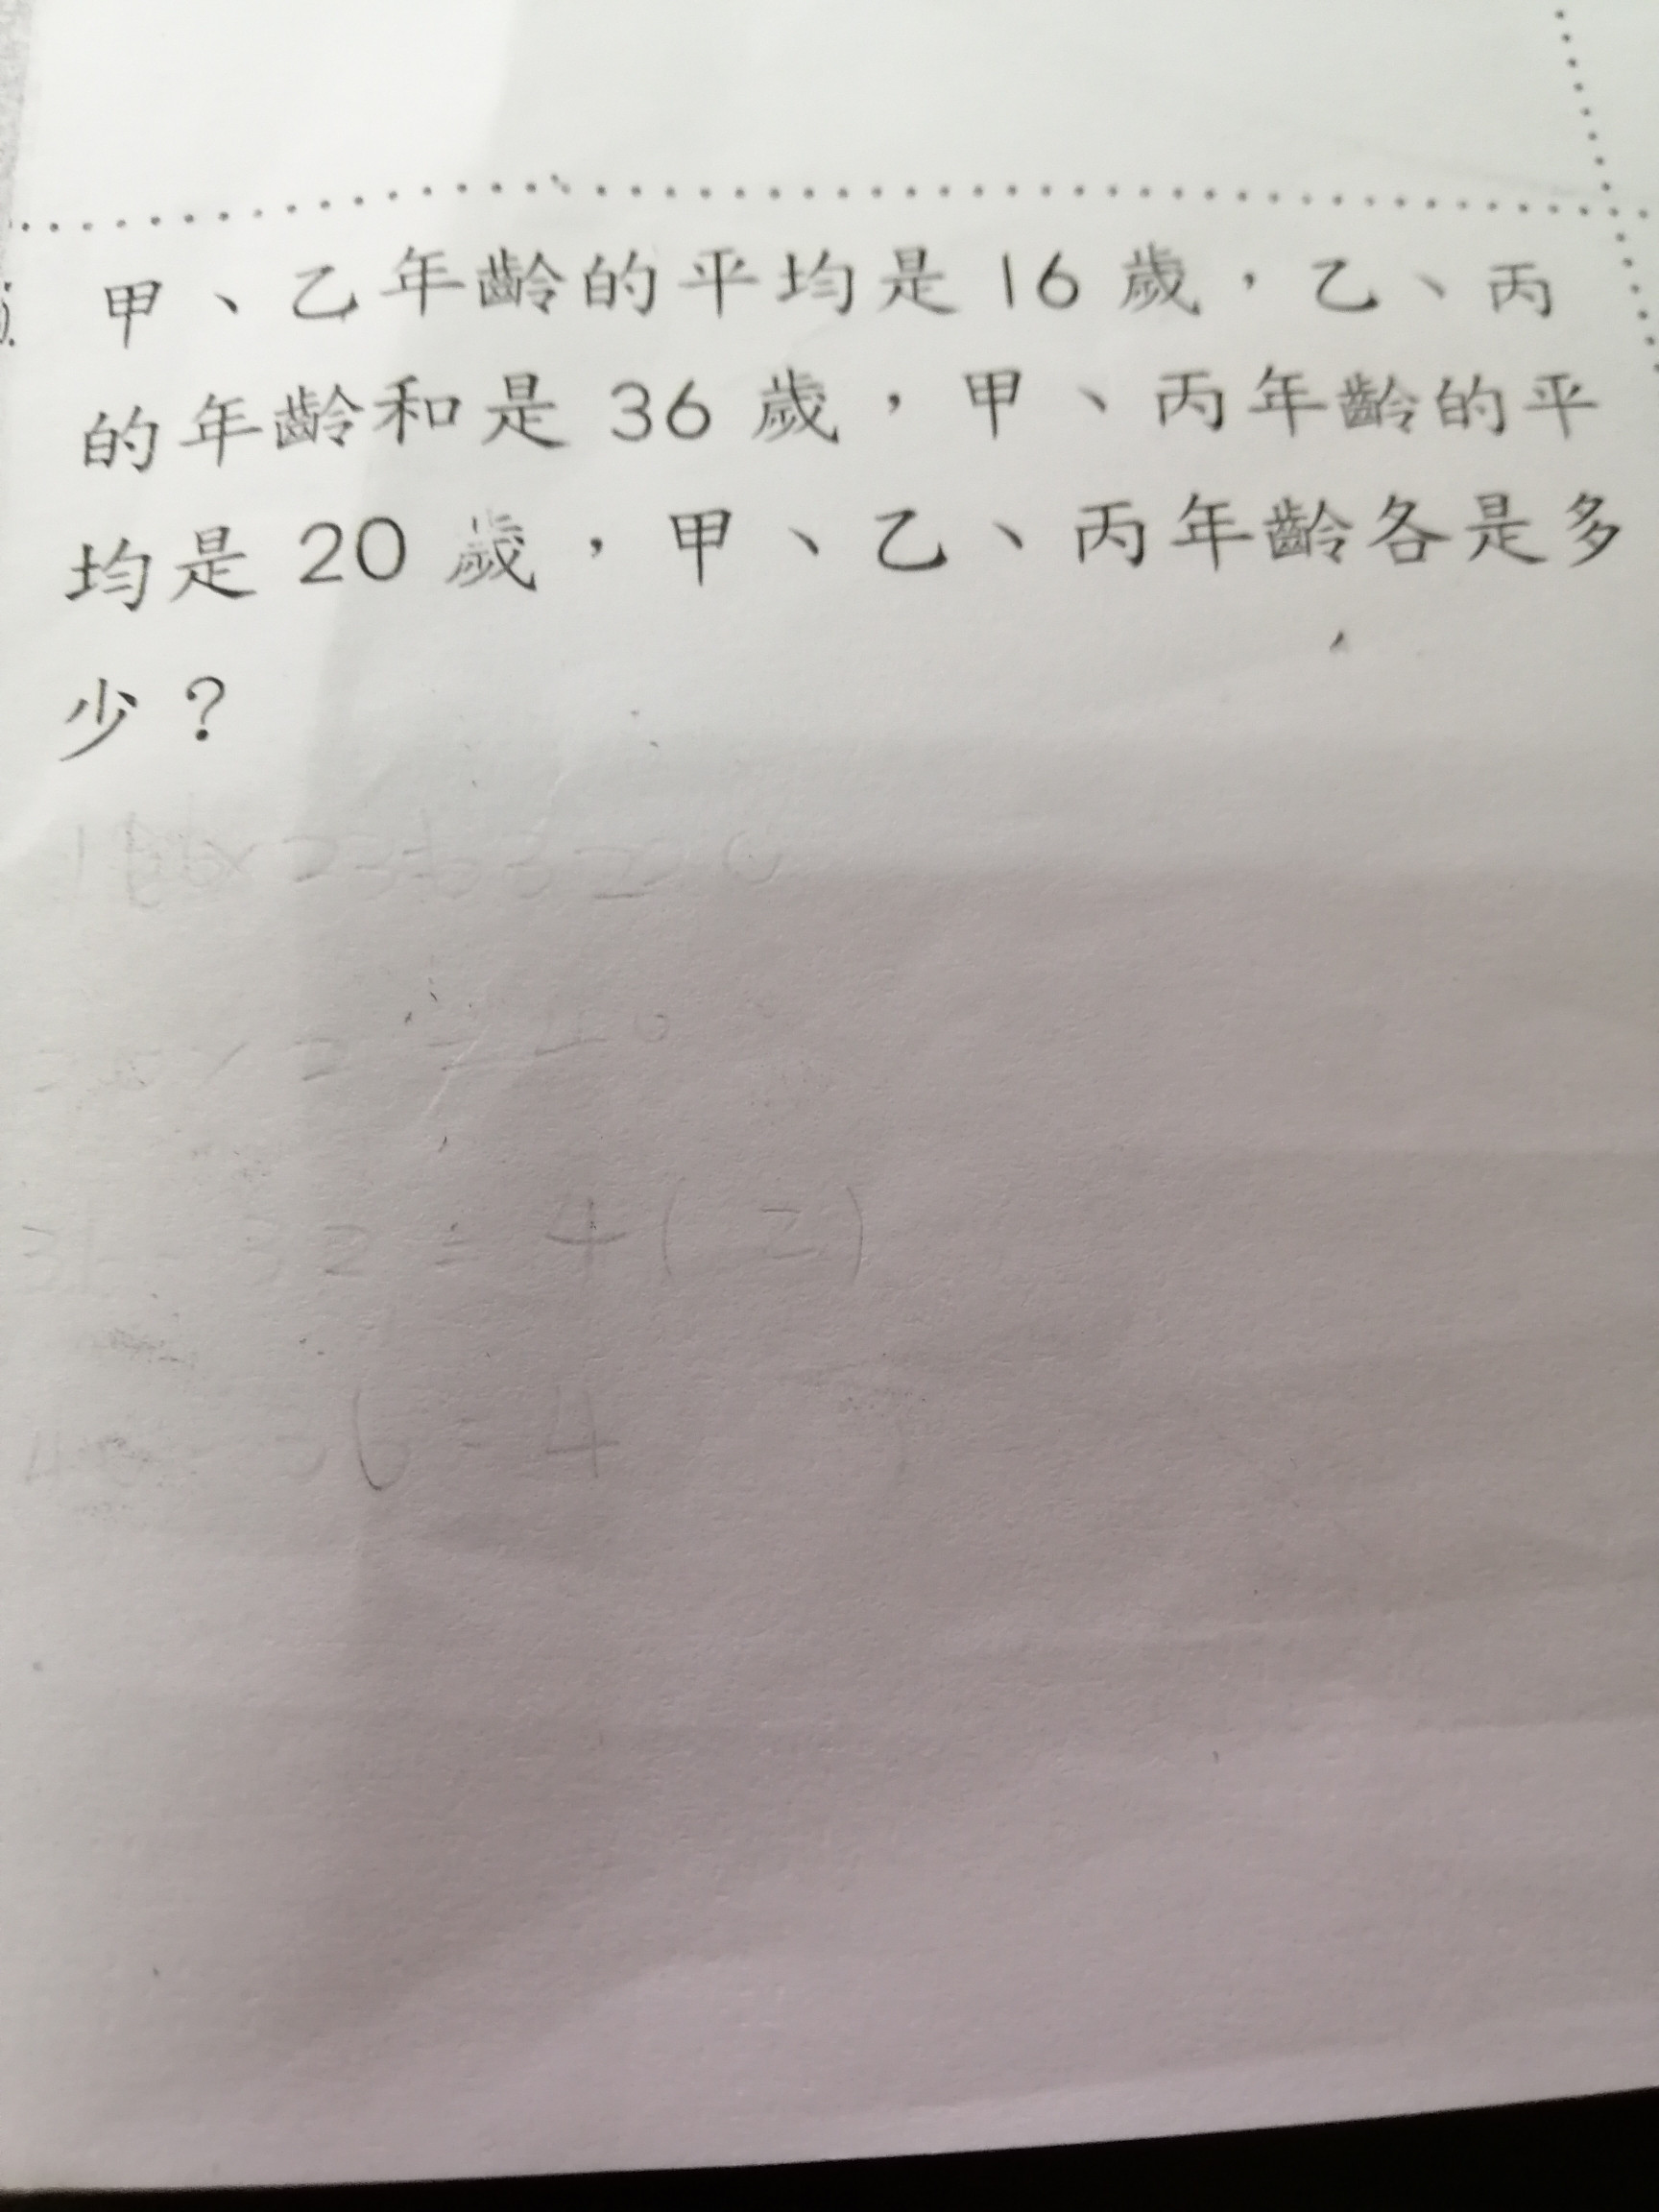 甲、乙年齡的平均是 16 歲，乙、丙
的年齡和是 36 歲，甲、丙年齡的平
均是 20 歲，甲、乙、丙年齡各是多
少？
36-32=4(乙)
40-36=4